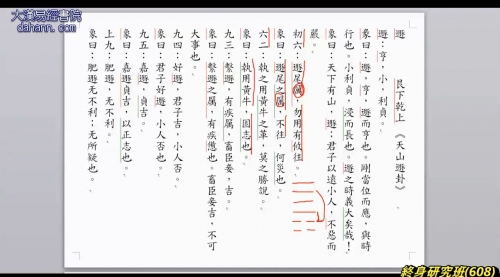 大漢易經書院
dahann.com
遯　艮下乾上　《天山遯卦》
遯：亨，小，利貞。
彖曰：遯，亨，遯而亨也。剛當位而應，與時
行也。小利貞，浸而長也。遯之時義大矣哉！
象曰：天下有山，遯；君子以遠小人，不惡而
嚴。
初六：遯尾厲，勿用有攸往。
象曰：遯尾之厲，不往，何災也。
六二：執之用黃牛之革，莫之勝說。
象曰：執用黃牛，固志也。
九三：繫遯，有疾厲，畜臣妾，吉。
象曰：繫遯之厲，有疾憊也。畜臣妾吉，不可
大事也。
九四：好遯，君子吉，小人否。
象曰：君子好遯，小人否也。
九五：嘉遯，貞吉。
象曰：嘉遯貞吉，以正志也。
上九：肥遯，无不利。
象曰：肥遯无不利；无所疑也。
終身研究班(608)